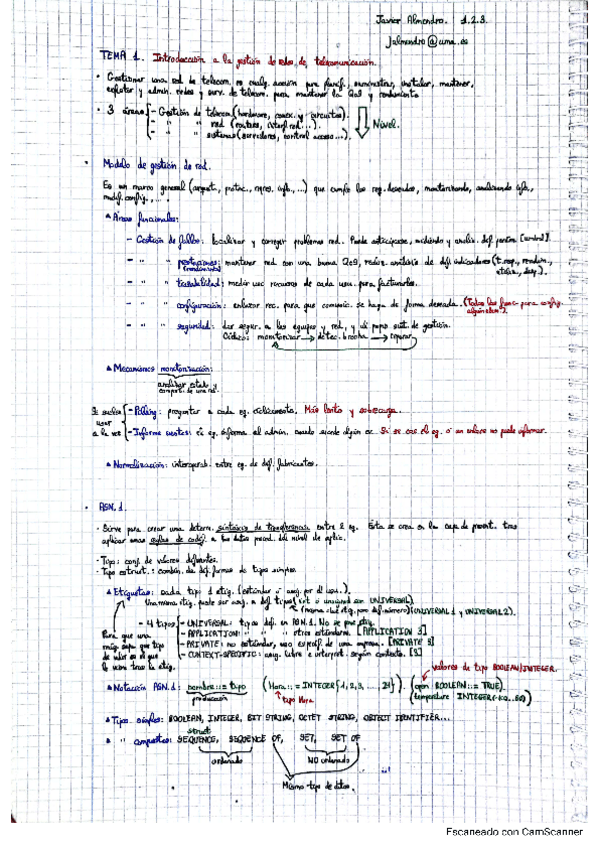 Javier Almendro. 1.2.3.
jalmendro@uma.es
TEMA 1. Introducción a la gestión de redes de telecomunicación.
· Gestionar una red de telecom. es cualq. acción para planif., administrar, instalar, mantener,
explotar y admin. redes y serv. de telecom. para mantener la QoS y rendimiento
· 3 áreas - Gestión de telecom (hardware, conex. y circuitos).
- " " red (routers, interf red...).
- " " sistemas (servidores, control acceso...).
Nivel.
· Modelo de gestión de red.
Es un marco general ( ) que cumple los req. deseados, monitorizando, analizando
modif. config., ...
▲ Áreas funcionales:
- Gestión de fallos: localizar y corregir problemas red. Puede anticiparse, midiendo y analiz. def. [umbral].
- " " prestaciones: mantener red con una buena QoS, análisis de dif. indicadores (t. resp., rendim.,
(rendimiento)
- " " contabilidad: medir uso recursos de cada usu. para facturarles.
- " " configuración: rec. para que comunic. se haga de forma deseada. (Todas las func. para config.
algún elem.).
- " " seguridad: dar segur. a los equipos y red, y al propio sist. de gestión.
Cíclico: monitorizar → detec. brecha → reparar
▲ Mecanismos monitorización:
analizar estado y
comport. de una red.
Se suelen
usar
a la vez
- Polling: preguntar a cada eq. cíclicamente. Más lento y sobrecarga.
- Informe eventos: el eq. informa al admin. cuando sucede algún ev. Si se cae el eq. o un enlace no puede informar.
▲ Normalización: interoperab. entre eq. de dif. fabricantes.
· ASN.1.
· Sirve para crear una determ. sintaxis de transferencia entre 2 eq. Esta se crea en la capa de present. tras
aplicar unas reglas de codif. a los datos proced. del nivel de aplic.
· Tipo: conj. de valores diferentes.
· Tipo estruct.: combin. de dif. formas de tipos simples.
▲ Etiquetas: cada tipo 1 etiq. (estándar o asig. por el usu.).
Una misma etiq. puede ser asig. a dif. tipos (int o unsigned son UNIVERSAL)
(misma clas etiq. pero dif. número) (UNIVERSAL 1 y UNIVERSAL 2).
Para que una
máq. sepa que tipo
de valor es el que
lleva tras la etiq.
- 4 tipos - UNIVERSAL: tipos def. en ASN.1. No se pone etiq.
- APPLICATION: " " otros estándares. [APPLICATION 3]
- PRIVATE: no estándar, uso específ. de una empresa. [PRIVATE 3]
- CONTEXT-SPECIFIC: asig. libre e interpret. según contexto. [3]
valores de tipo BOOLEAN/INTEGER.
▲ Notación ASN.1: nombre ::= tipo (Hora ::= INTEGER {1, 2, 3, ..., 24}). (open BOOLEAN ::= TRUE)
producción tipo Hora (temperature INTEGER
▲ Tipos simples: BOOLEAN, INTEGER, BIT STRING, OCTET STRING, OBJECT IDENTIFIER...
struct
▲ " compuestos: SEQUENCE, SEQUENCE OF, SET, SET OF
ordenado NO ordenado
Mismo tipo de datos.
Escaneado con CamScanner